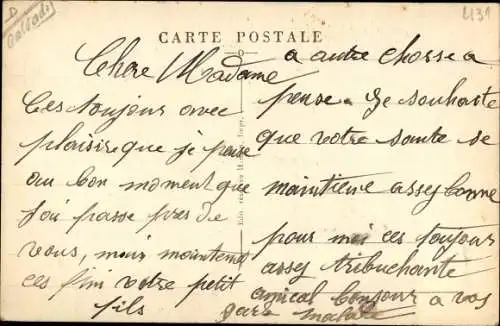 Calvados
4131
CARTE POSTALE
Chere Madame
Ces toujour avec
plaisir que je pense
au bon moment que
J'ai passe pres de
vous, mais maintenent
ces fini votre petit
fils
a autre chosse a
pense. Je souhaite
que votre sante se
maintiene assez bonne
pour moi ces toujour
assez tribuchante
amical bonjour a vos
gars